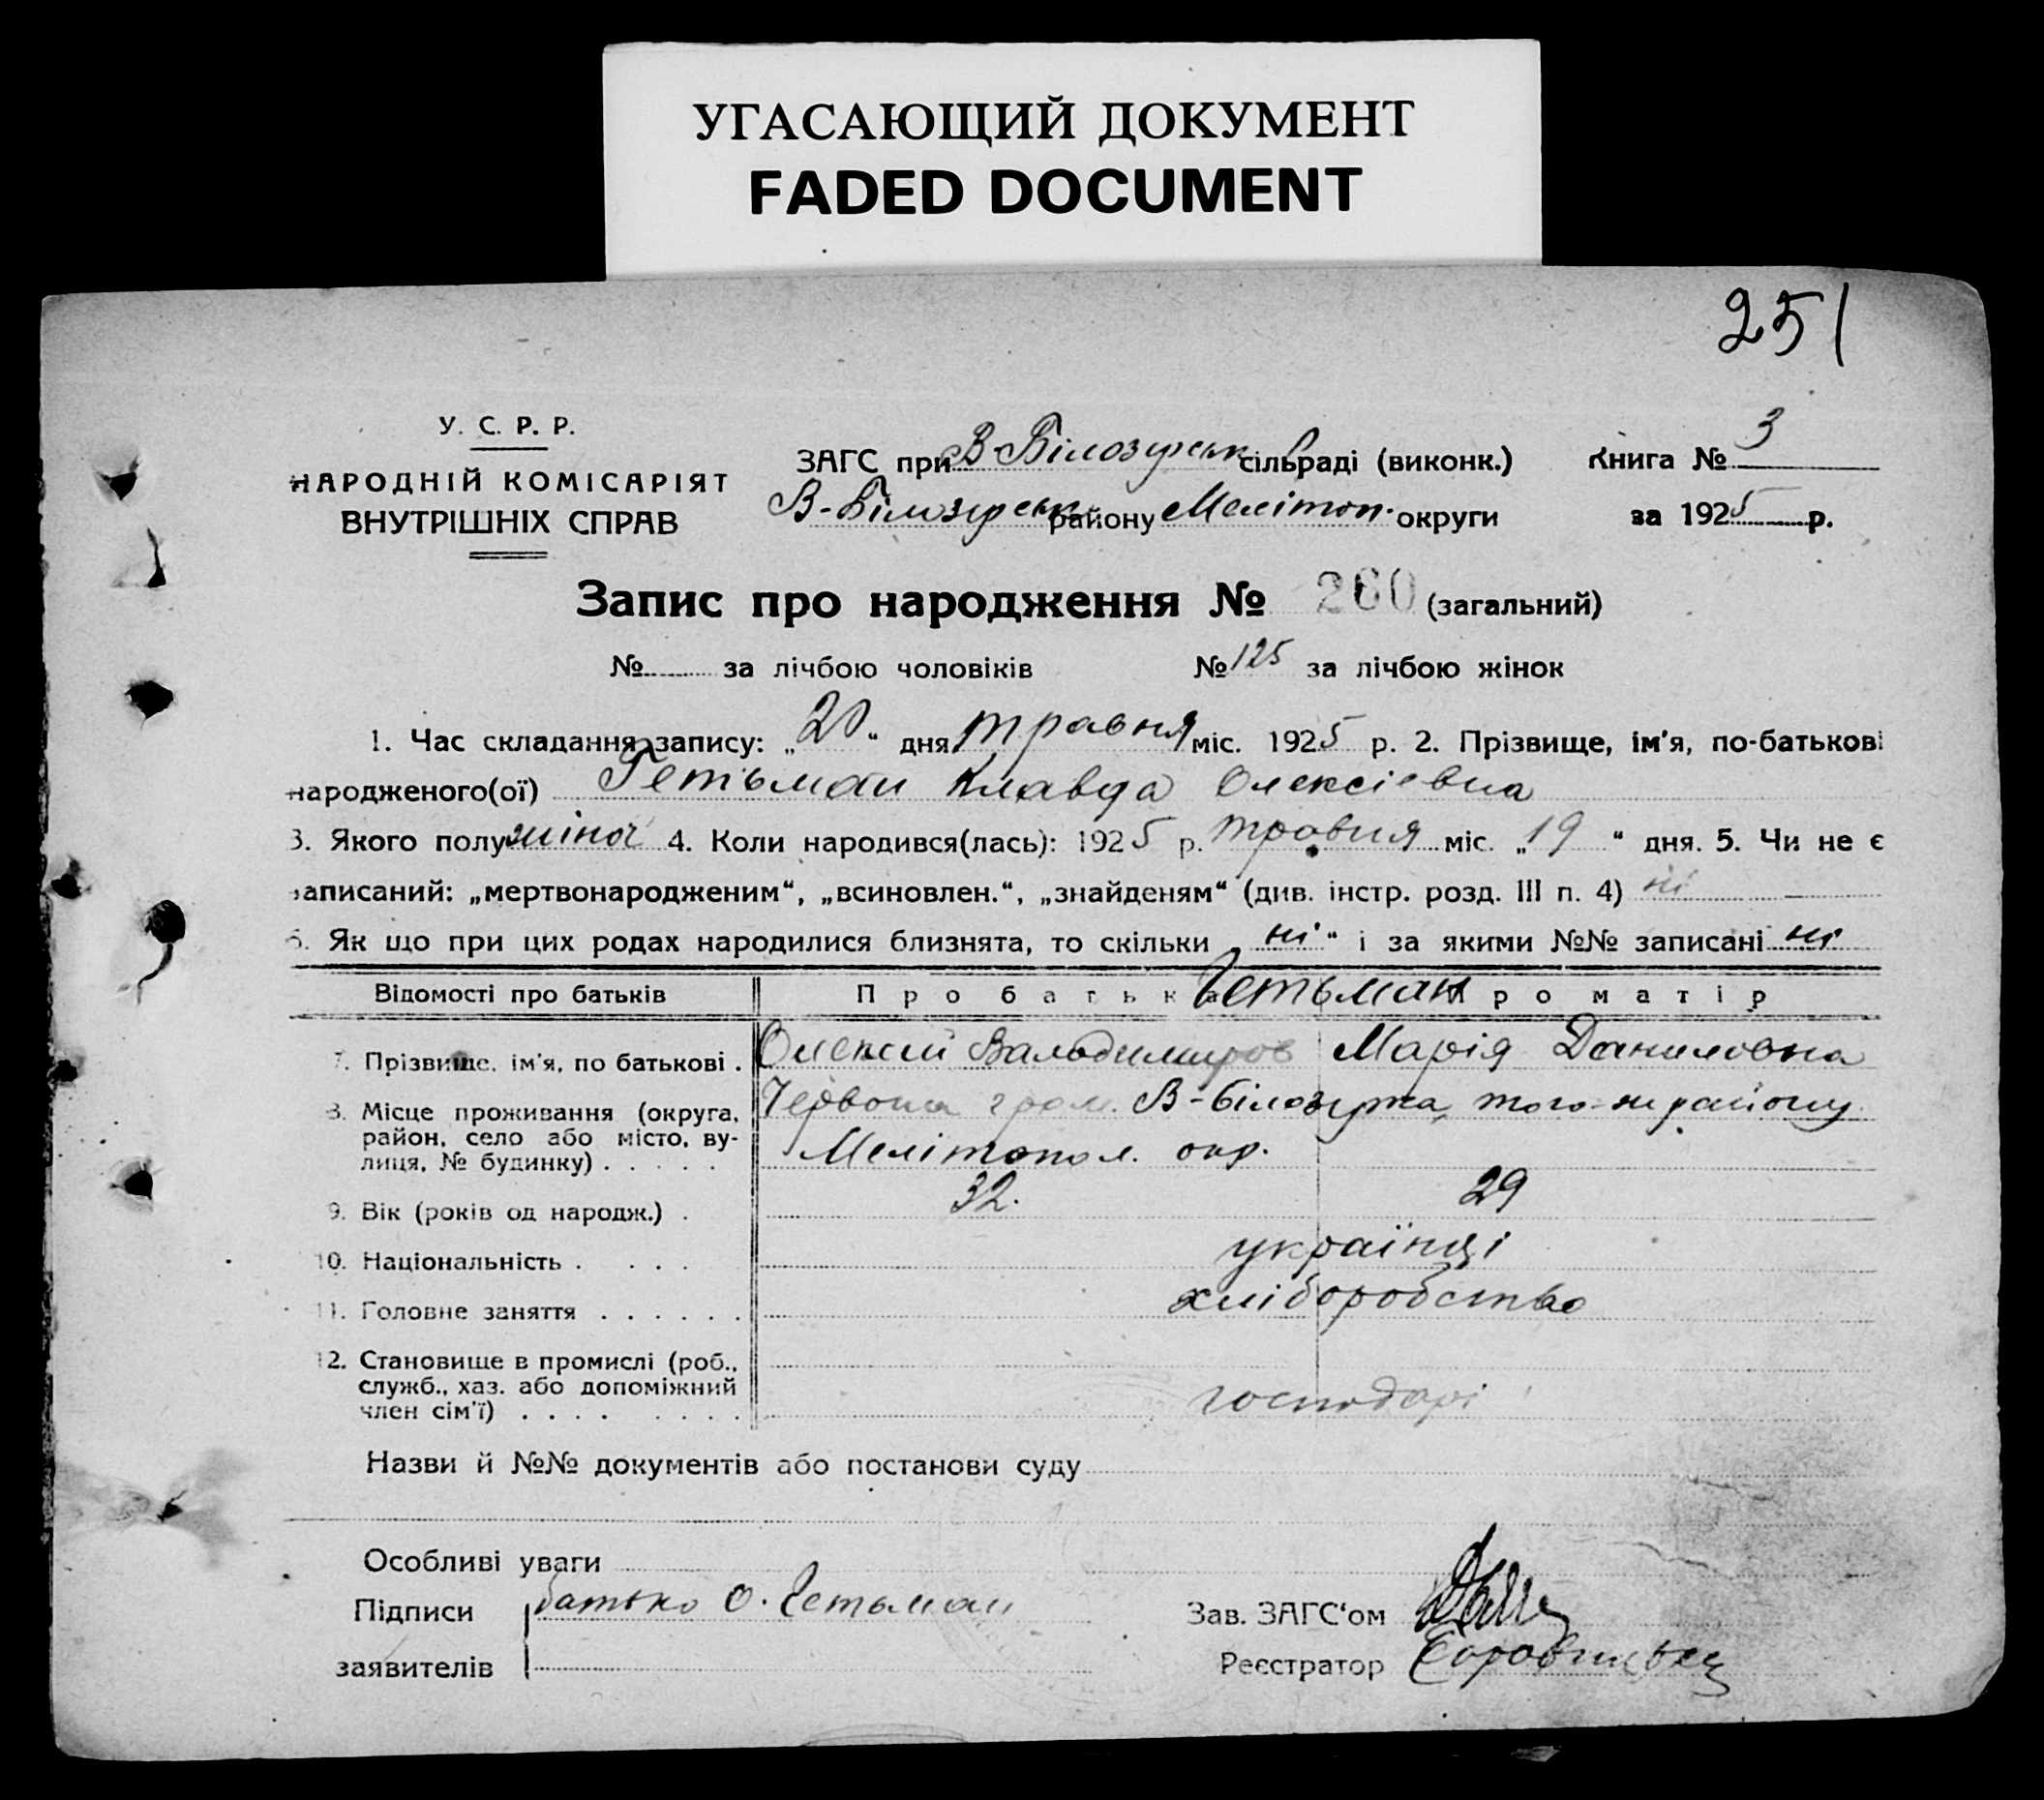 УГАСАЮЩИЙ ДОКУМЕНТ
FADED DOCUMENT
251
У. С. Р. Р.
НАРОДНІЙ КОМІСАРІЯТ
ВНУТРІШНІХ СПРАВ
ЗАГС при В-Білозерськ сільраді (виконк.) Книга № 3
В-Білозерськ району Меліточ. округи за 1925 р.
Запис про народження № 260 (загальний)
№ за лічбою чоловіків № 125 за лічбою жінок
1. Час складання запису: „20“ дня травня міс. 1925 р. 2. Прізвище, ім'я, по-батькові
народженого(ої) Гетьман Клавда Олексіевна
3. Якого полу жіноч 4. Коли народився(лась): 1925 р. травня міс. „19“ дня. 5. Чи не є
записаний: „мертвонародженим“, „всиновлен.“, „знайденям“ (див. інстр. розд. III п. 4) ні
6. Як що при цих родах народилися близнята, то скільки „ні“ і за якими №№ записані ні
Відомості про батьків Про батька Гетьман Про матір
7. Прізвище, ім'я, по батькові . Олексій Вальодимиров Марія Даниловна
8. Місце проживання (округа, район, село або місто, вулиця, № будинку) . . . . . Червона гром. В-Білозерка, того-ж району
Мелітопол. окр.
9. Вік (років од народж.) . 32. 29
10. Національність . . . . українці
11. Головне заняття . . . . . . хліборобство
12. Становище в промислі (роб.,
служб., хаз. або допоміжний
член сім'ї) . . . . . . . . господарі
Назви й №№ документів або постанови суду
Особливі уваги
Підписи батько О. Гетьман Зав. ЗАГС'ом
заявителів Реєстратор